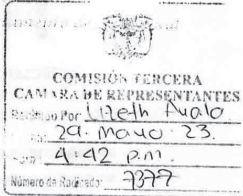 COMISIÓN TERCERA
CAMARA DE REPRESENTANTES
Recibido Por: Lizeth Avalo
29. mayo 23.
Hora: 4:42 p.m.
Número de Radicado: 7377